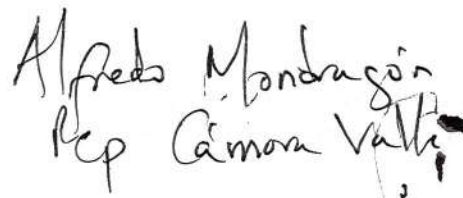 Alfredo Mondragón
Rep Cámara Valle